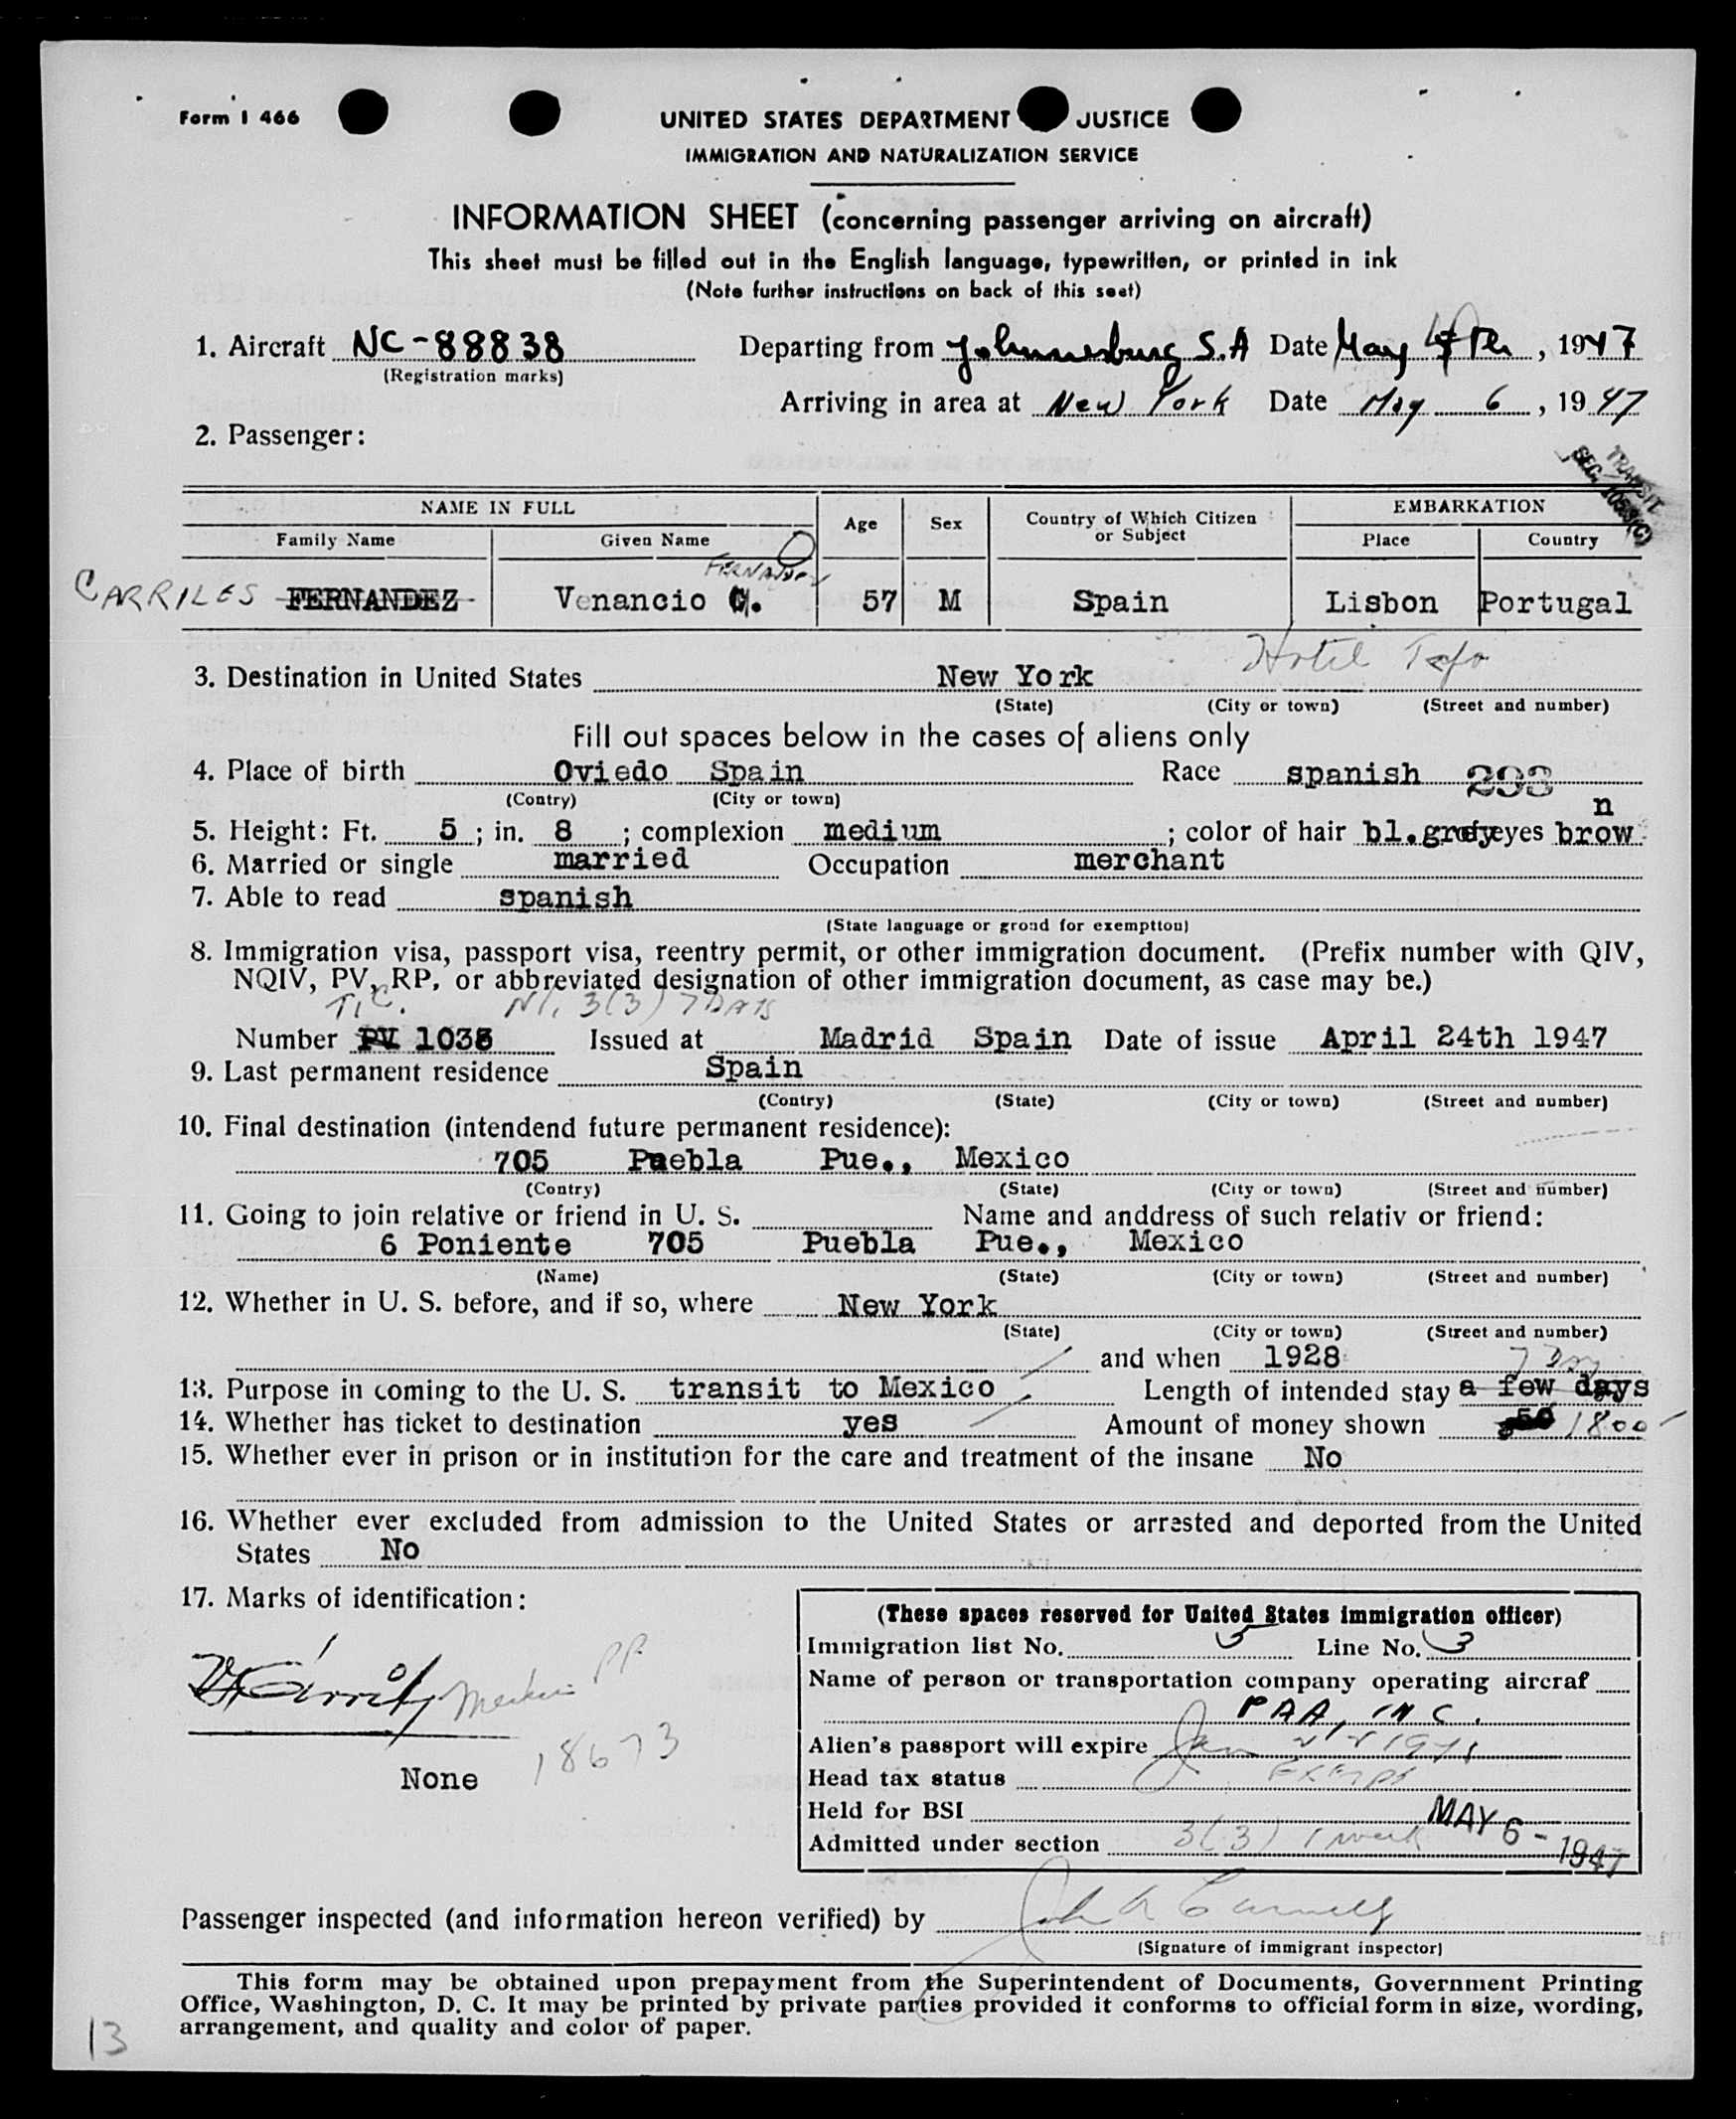 Form I 466
UNITED STATES DEPARTMENT JUSTICE
IMMIGRATION AND NATURALIZATION SERVICE
INFORMATION SHEET (concerning passenger arriving on aircraft)
This sheet must be filled out in the English language, typewritten, or printed in ink
(Note further instructions on back of this seet)
1. Aircraft NC-88838 Departing from Johannesburg S.A Date May , 1947
(Registration marks)
Arriving in area at New York Date May 6, 1947
2. Passenger:
TRANSIT
SEC. 1059(C)
NAME IN FULL Age Sex Country of Which Citizen or Subject EMBARKATION
Family Name Given Name Place Country
FERNANDEZ
CARRILES FERNANDEZ Venancio 57 M Spain Lisbon Portugal
Hotel
3. Destination in United States New York
(State) (City or town) (Street and number)
Fill out spaces below in the cases of aliens only
4. Place of birth Oviedo Spain Race spanish 293
(Contry) (City or town)
5. Height: Ft. 5; in. 8; complexion medium; color of hair bl.grey eyes brown
6. Married or single married Occupation merchant
7. Able to read spanish
(State language or grond for exemption)
8. Immigration visa, passport visa, reentry permit, or other immigration document. (Prefix number with QIV,
NQIV, PV, RP, or abbreviated designation of other immigration document, as case may be.)
T.C. 3(3) 7 DAYS
Number PV 1038 Issued at Madrid Spain Date of issue April 24th 1947
9. Last permanent residence Spain
(Contry) (State) (City or town) (Street and number)
10. Final destination (intendend future permanent residence):
705 Puebla Pue., Mexico
(Contry) (State) (City or town) (Street and number)
11. Going to join relative or friend in U. S. Name and anddress of such relativ or friend:
6 Poniente 705 Puebla Pue., Mexico
(Name) (State) (City or town) (Street and number)
12. Whether in U. S. before, and if so, where New York
(State) (City or town) (Street and number)
and when 1928 7 Days
13. Purpose in coming to the U. S. transit to Mexico Length of intended stay a few days
14. Whether has ticket to destination yes Amount of money shown 1800
15. Whether ever in prison or in institution for the care and treatment of the insane No
16. Whether ever excluded from admission to the United States or arrested and deported from the United
States No
17. Marks of identification:
18673
None
(These spaces reserved for United States immigration officer)
Immigration list No. 5 Line No. 3
Name of person or transportation company operating aircraf
PAA, INC.
Alien's passport will expire Jan
Head tax status Exempt
Held for BSI
MAY 6 - 1947
Admitted under section 3(3) 1 week
Passenger inspected (and information hereon verified) by
(Signature of immigrant inspector)
This form may be obtained upon prepayment from the Superintendent of Documents, Government Printing
Office, Washington, D. C. It may be printed by private parties provided it conforms to official form in size, wording,
arrangement, and quality and color of paper.
13